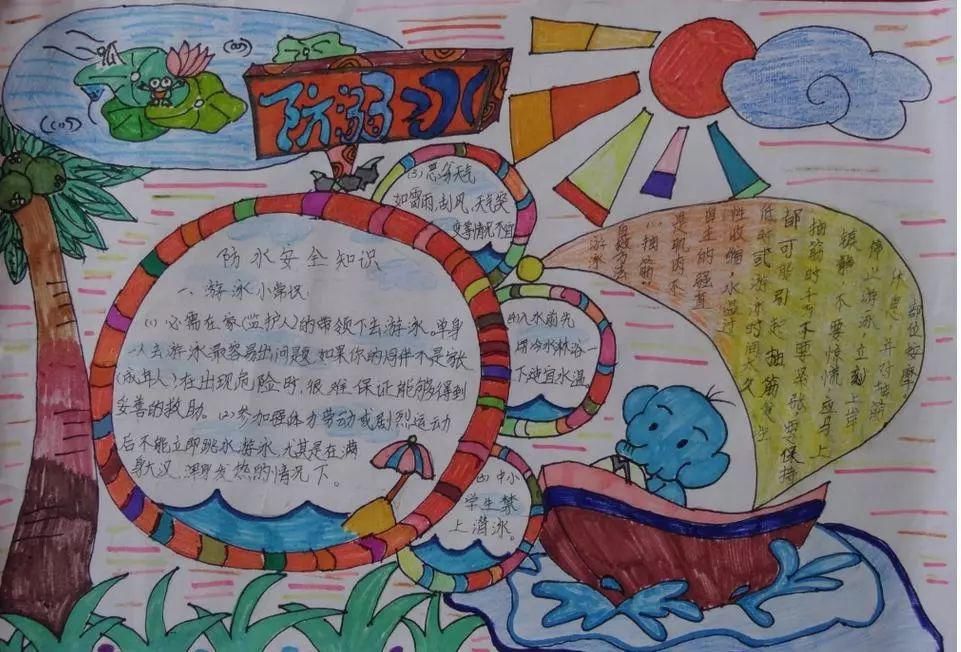 防溺水
防水安全知识
一、游泳小常识:
(1) 必需在家(监护人)的带领下去游泳。单身
一人去游泳最容易出问题,如果你的同伴不是家长
(成年人)在出现危险时,很难保证能够得到
妥善的救助。(2)参加强体力劳动或剧烈运动
后不能立即跳水游泳,尤其是在满
身大汉,浑身发热的情况下。
(3)恶劣天气
如雷雨,刮风,天气突
变等情况不宜
(4)入水前先
用冷水淋浴一
下适宜水温
中小
学生禁
上游泳。
游泳
自救方法
(一)抽筋:
是肌肉不
自主的强直
性收缩,水温过
低时或游泳时间太久
都可能引起抽筋发生
抽筋时千万不要紧张要保持
镇静,不要惊慌,应马上
停止游泳立刻上岸
休息,并对抽筋
部位按摩。